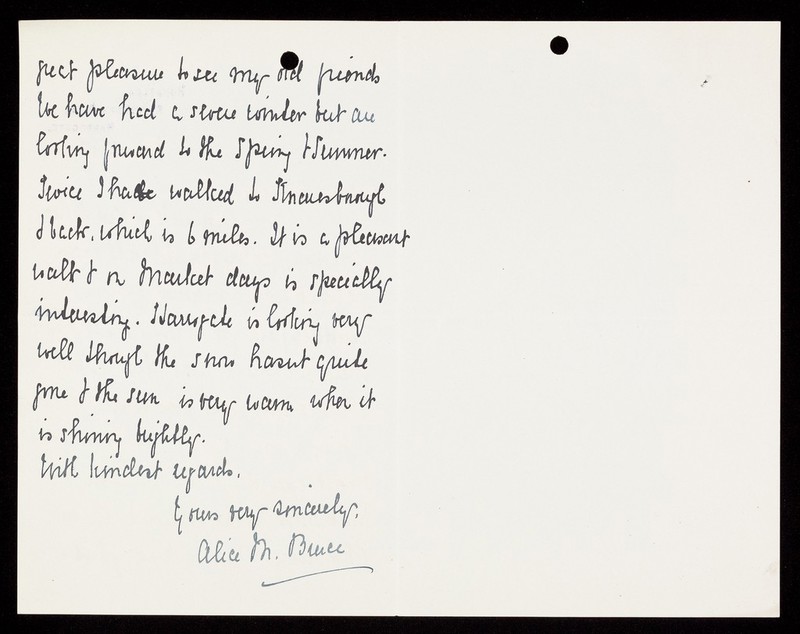 great pleasure to see my old friends
We have had a severe winter but are
looking forward to the Spring & Summer.
Twice I have walked to Knaresborough
& back, which is 6 miles. It is a pleasant
walk & on Market days is specially
interesting. Harrogate is looking very
well though the snow hasnt quite
gone & the sun is very warm when it
is shining brightly.
With kindest regards.
Yours very sincerely,
Alice M. Bruce